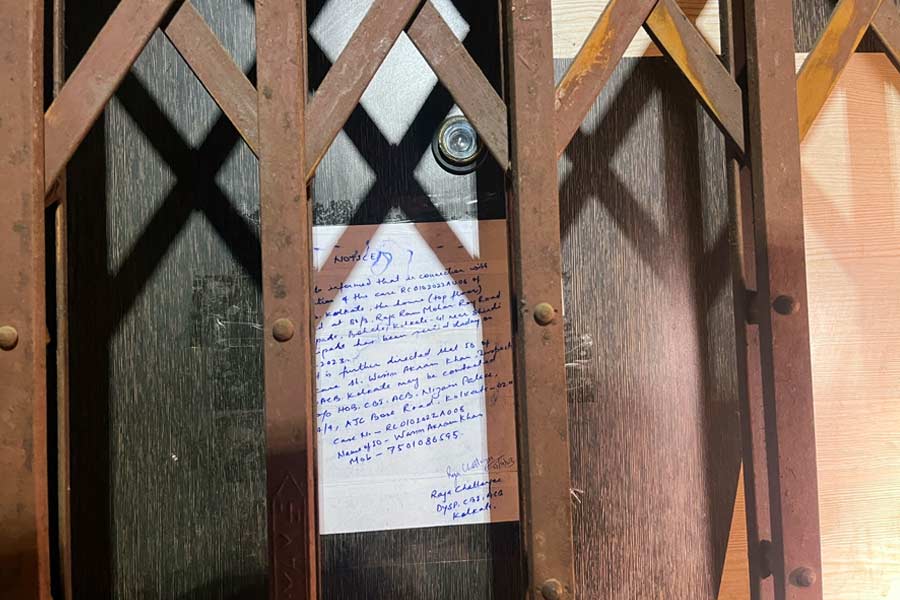 NOTICE
be informed that in connection with
of the case RC0102022A006 of
Kolkata, the house (top floor)
at 50/3, Raja Ram Mohan Roy Road
Behala, Kolkata-41 near
has been sealed today on
.2023.
is further directed that IO of
case Sh. Wasim Akram Khan, Inspector
ACB, Kolkata may be contacted
HOB, CBI, ACB, Nizam Palace,
AJC Bose Road, Kolkata-020
Case No - RC0102022A006
Name of IO - Wasim Akram Khan
Mob - 7501086595.
Raja Chatterjee
DySP, CBI, ACB
Kolkata.